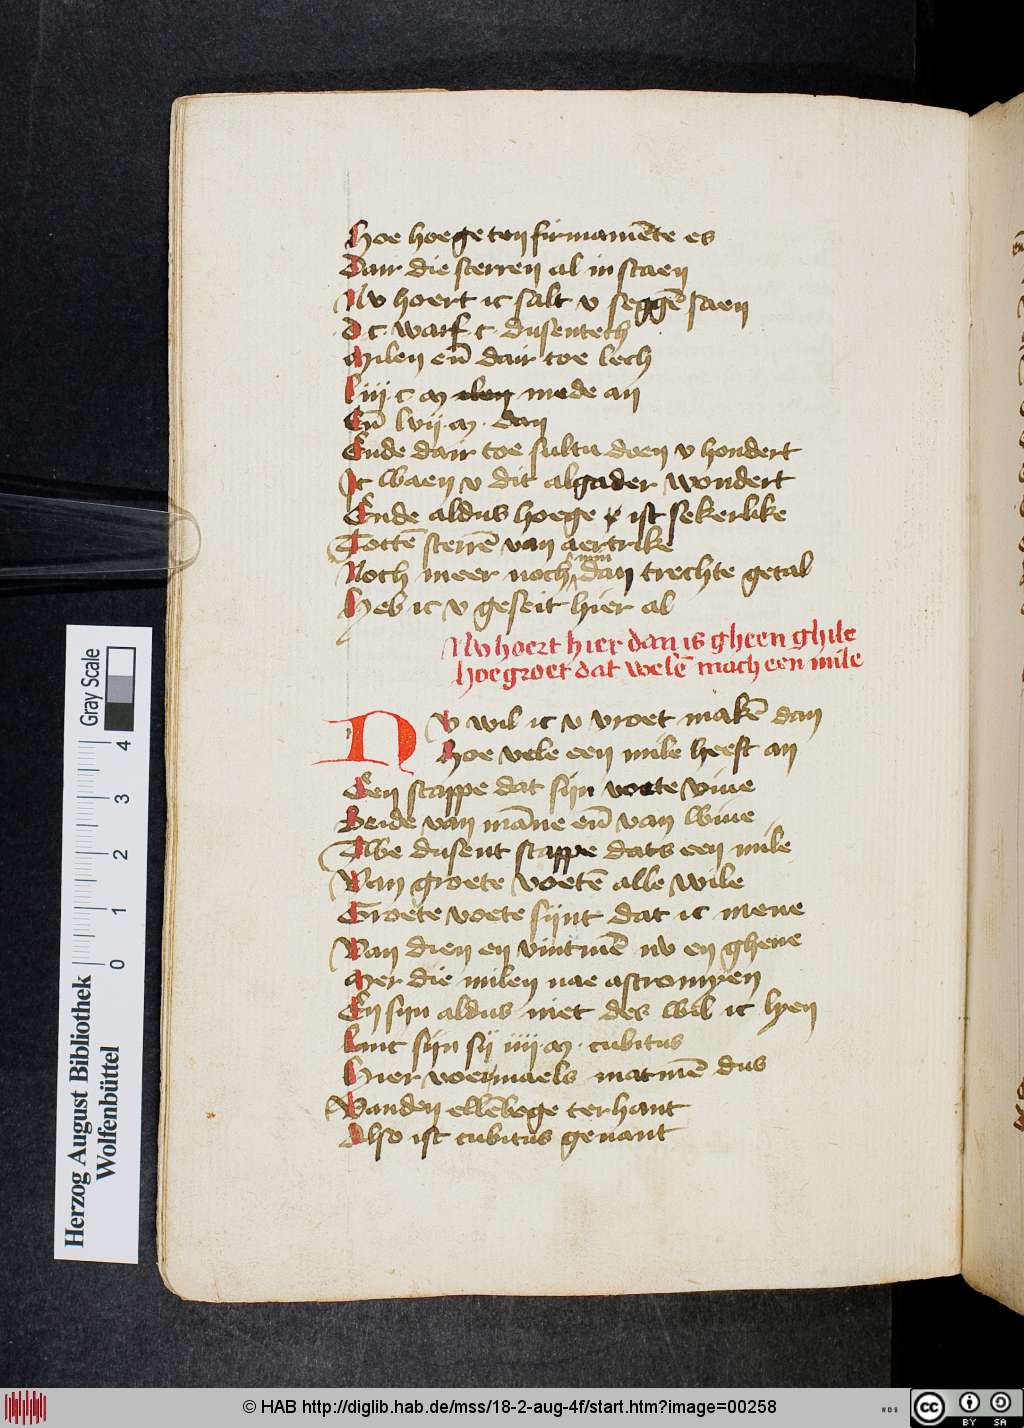 Hoe hoege ten firmamēte es
Dair die sterren al in staen
Nv hoert ic salt v seggē saen
D c. warf. c. dusentech
Milen en̄ dair toe lech
Liij. c m mede an
En̄ lvij. m. dan
Ende dair toe sultu doen v hondert
Ic waen v dit algader wondert
Ende aldus hoege ist sekerlike
Tottē sterrē van aertrike
Noch meer noch min dan trechte getal
Heb ic v geseit hier al
Nv hoert hier dan is gheen ghile
hoe groet dat welē mach een mile
Nv wil ic v vroet makē dan
Hoe vele een mile heeft an
Een stappe dat sijn voete viue
Beide van māne en̄ van wiue
Twe dusent stappe dats een mile
Van groete voetē alle wile
Groete voete sijnt dat ic mene
Van dien en vintmē nv en ghene
Mer die milen nae astromyen
En sijn aldus niet des wil ic lyen
Lanc sijn sij iiij. m. cubitus
Hier voermaels matmē dus
Vanden ellēboge ter hant
Also ist cubitus genant
Herzog August Bibliothek
Wolfenbüttel
Gray Scale
0 1 2 3 4
© HAB http://diglib.hab.de/mss/18-2-aug-4f/start.htm?image=00258
cc BY SA